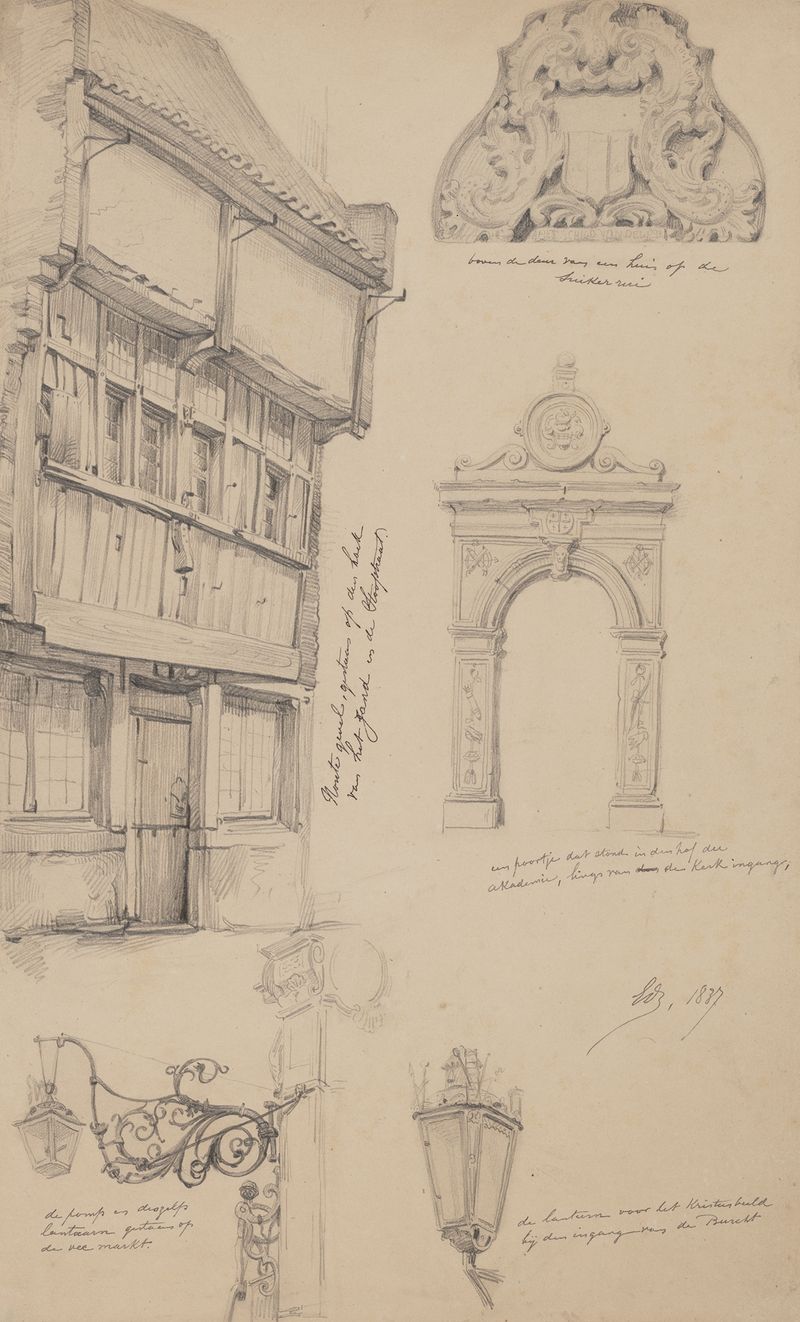 boven de deur van een huis op de
Suikerrui
Houte gevel, gestaan op den hoek
van het zand en de Stoofstraat
een poortje dat stond in den hof der
akademie, lings van den Kerk ingang,
Edz, 1837
de pomp en desgelps
lantaarn gestaen op
de vee markt.
de lantaern voor het Kristusbeeld
bij den ingang van de Burcht